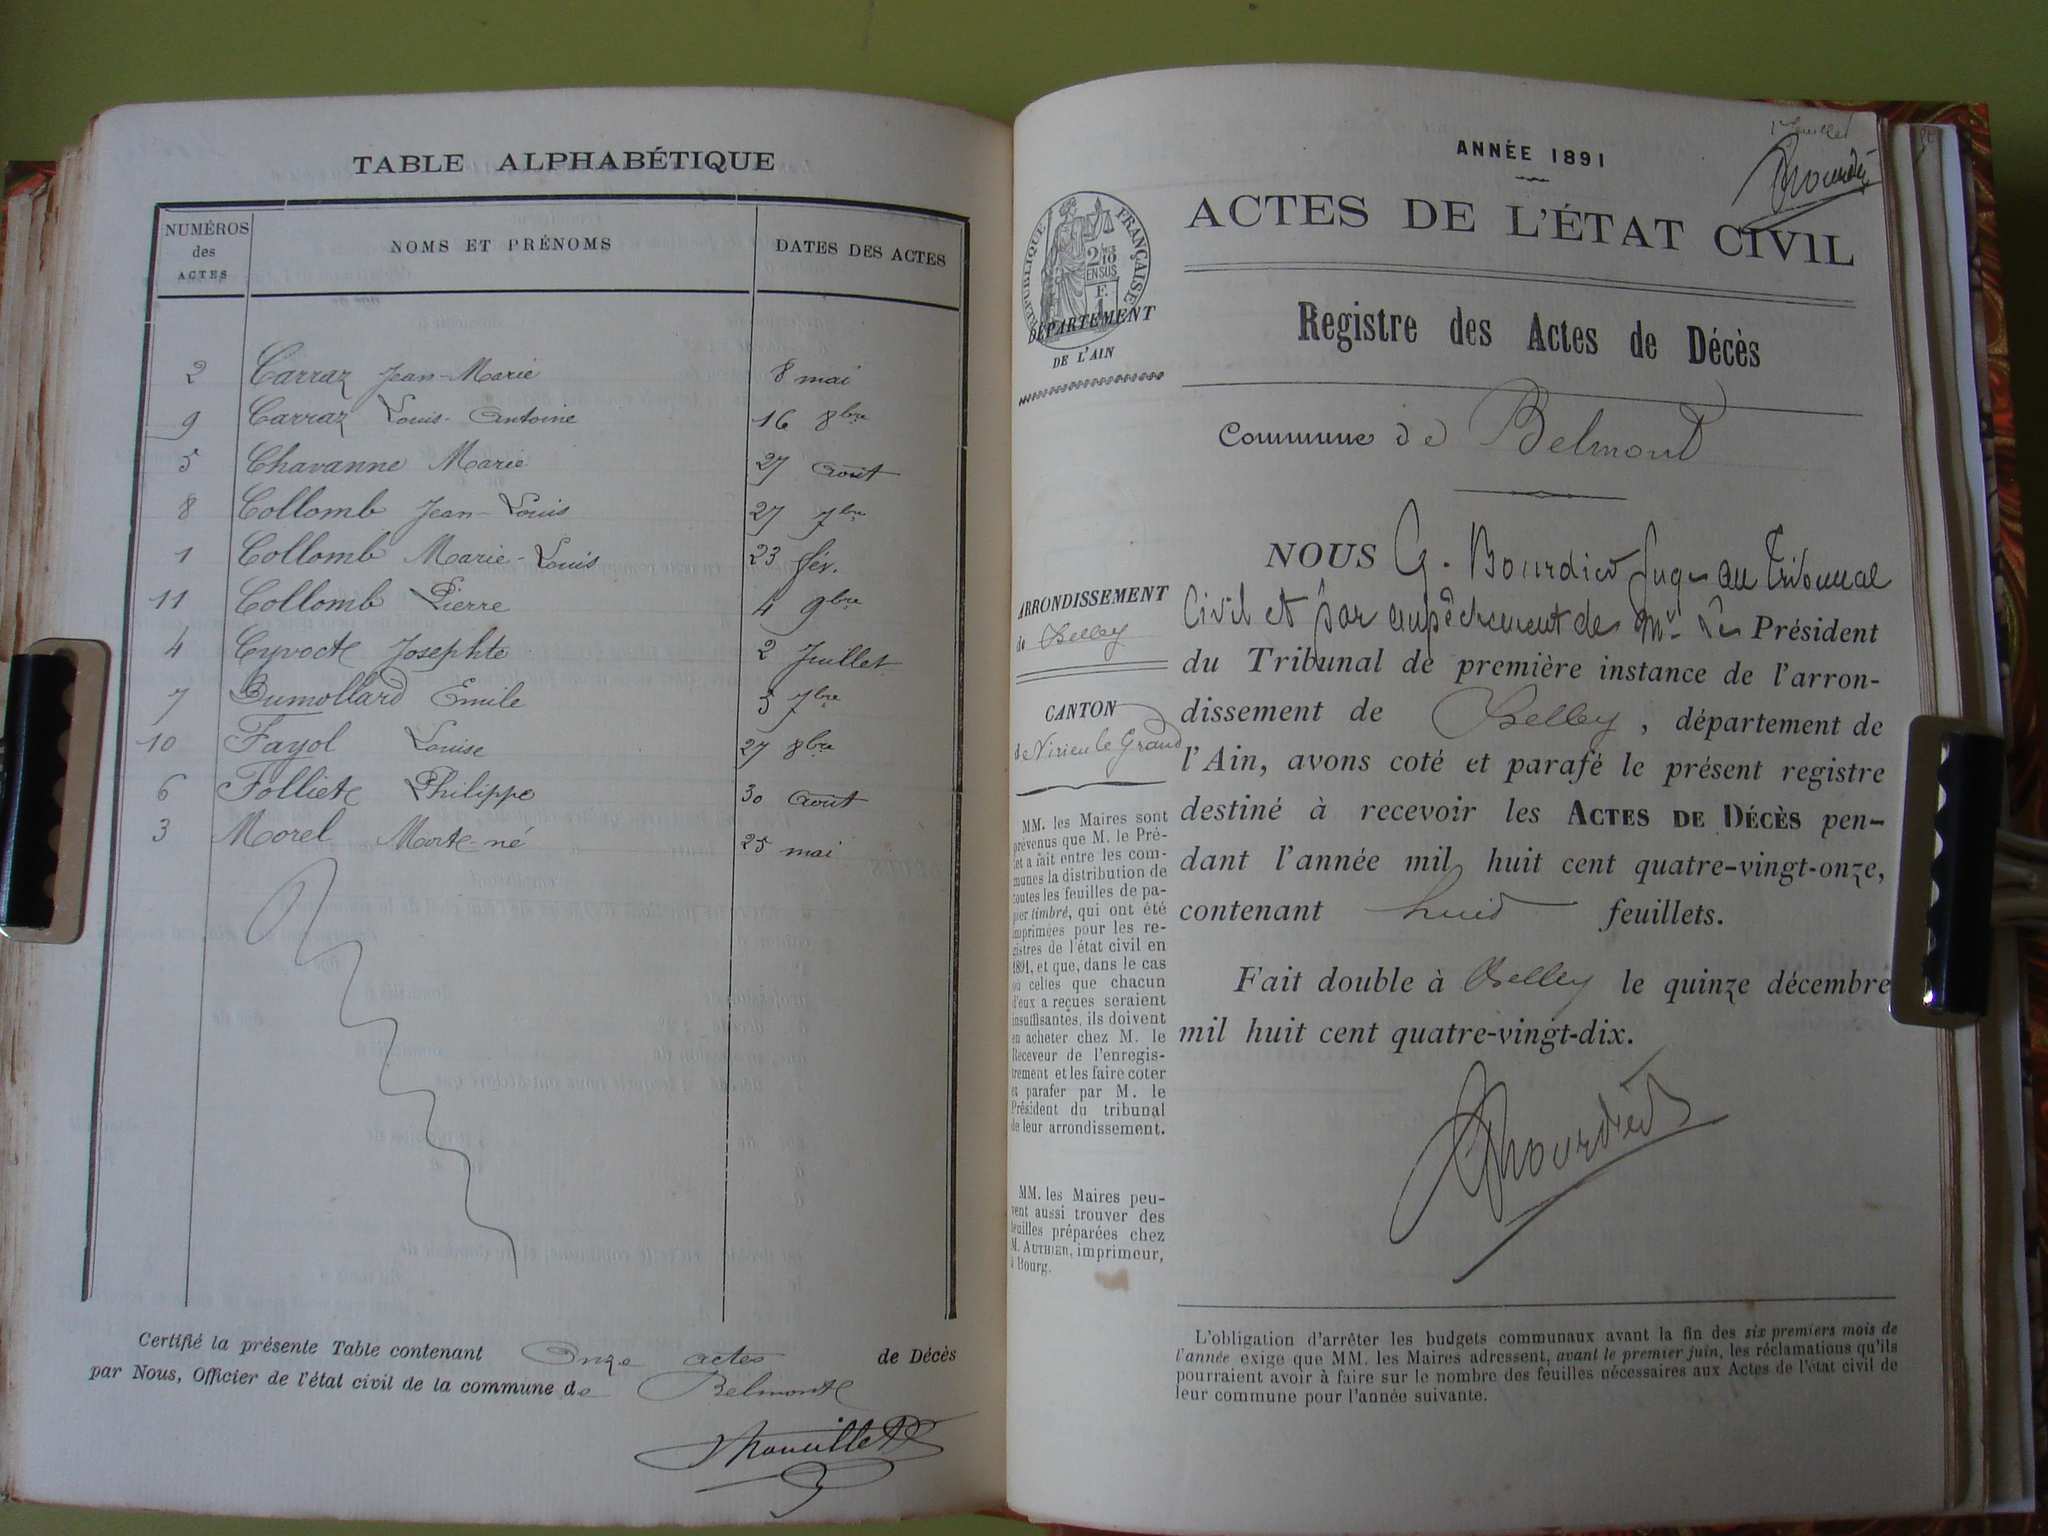 TABLE ALPHABÉTIQUE
NUMÉROS des ACTES NOMS ET PRÉNOMS DATES DES ACTES
2 Carraz Jean-Marie 8 mai
9 Carraz Louis-Antoine 16 8bre
5 Chavanne Marie 27 Août
8 Collomb Jean-Louis 27 7bre
1 Collomb Marie-Louis 23 fév.
11 Collomb Pierre 4 9bre
4 Cyvoct Josephte 2 Juillet
7 Dumollard Emile 5 7bre
10 Fayol Louise 27 8bre
6 Folliet Philippe 30 Août
3 Morel Mort-né 25 mai
Certifié la présente Table contenant Onze actes de Décès
par Nous, Officier de l'état civil de la commune de Belmont
1er feuillet
ANNÉE 1891
ACTES DE L'ÉTAT CIVIL
RÉPUBLIQUE FRANÇAISE
2/10 EN SUS
F. 1
DÉPARTEMENT
DE L'AIN
Registre des Actes de Décès
Commune de Belmont
ARRONDISSEMENT
de Belley
CANTON
de Virieu le Grand
MM. les Maires sont
prévenus que M. le Pré-
fet a fait entre les com-
munes la distribution de
toutes les feuilles de pa-
pier timbré, qui ont été
imprimées pour les re-
gistres de l'état civil en
1891, et que, dans le cas
où celles que chacun
d'eux a reçues seraient
insuffisantes, ils doivent
en acheter chez M. le
Receveur de l'enregis-
trement et les faire coter
et parafer par M. le
Président du tribunal
de leur arrondissement.
MM. les Maires peu-
vent aussi trouver des
feuilles préparées chez
M. AUTHIER, imprimeur,
à Bourg.
NOUS G. Bourdier Juge au Tribunal
Civil et par empêchement de Mr le Président
du Tribunal de première instance de l'arron-
dissement de Belley, département de
l'Ain, avons coté et parafé le présent registre
destiné à recevoir les ACTES DE DÉCÈS pen-
dant l'année mil huit cent quatre-vingt-onze,
contenant huit feuillets.
Fait double à Belley le quinze décembre
mil huit cent quatre-vingt-dix.
L'obligation d'arrêter les budgets communaux avant la fin des six premiers mois de
l'année exige que MM. les Maires adressent, avant le premier juin, les réclamations qu'ils
pourraient avoir à faire sur le nombre des feuilles nécessaires aux Actes de l'état civil de
leur commune pour l'année suivante.